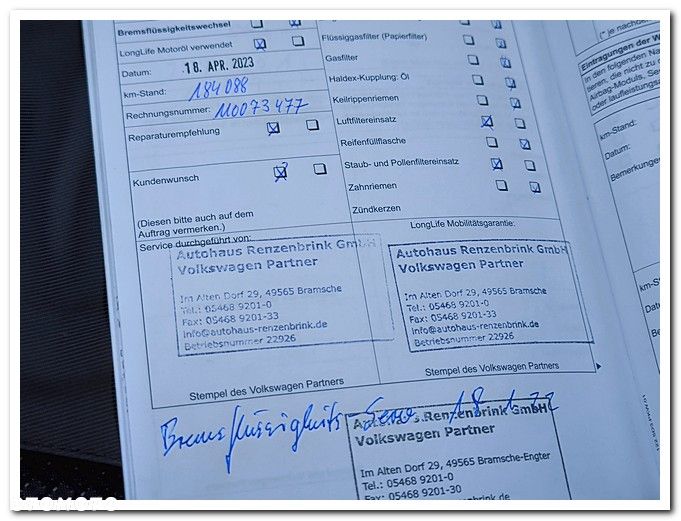 Bremsflüssigkeitswechsel
LongLife Motoröl verwendet
Datum: 18. APR. 2023
km-Stand: 184088
Rechnungsnummer: 110073477
Reparaturempfehlung
Kundenwunsch
(Diesen bitte auch auf dem
Auftrag vermerken.)
Service durchgeführt von:
Autohaus Renzenbrink GmbH
Volkswagen Partner
Im Alten Dorf 29, 49565 Bramsche
Tel.: 05468 9201-0
Fax: 05468 9201-33
info@autohaus-renzenbrink.de
Betriebsnummer 22926
Stempel des Volkswagen Partners
Flüssiggasfilter (Papierfilter)
Gasfilter
Haldex-Kupplung: Öl
Keilrippenriemen
Luftfiltereinsatz
Reifenfüllflasche
Staub- und Pollenfiltereinsatz
Zahnriemen
Zündkerzen
LongLife Mobilitätsgarantie:
Autohaus Renzenbrink GmbH
Volkswagen Partner
Im Alten Dorf 29, 49565 Bramsche
Tel.: 05468 9201-0
Fax: 05468 9201-33
info@autohaus-renzenbrink.de
Betriebsnummer 22926
Stempel des Volkswagen Partners
Bremsflüssigkeits
Autohaus Renzenbrink GmbH
Volkswagen Partner
Im Alten Dorf 29, 49565 Bramsche-Engter
Tel.: 05468 9201-0
Fax: 05468 9201-30
(* je nach
Eintragungen der W
In den folgenden Na
tieren, die nicht zu d
Airbag-Moduls, Se
oder laufleistungs
km-Stand:
Datum:
Bemerkunge
km-S
Datu
Be
OTOMOTO